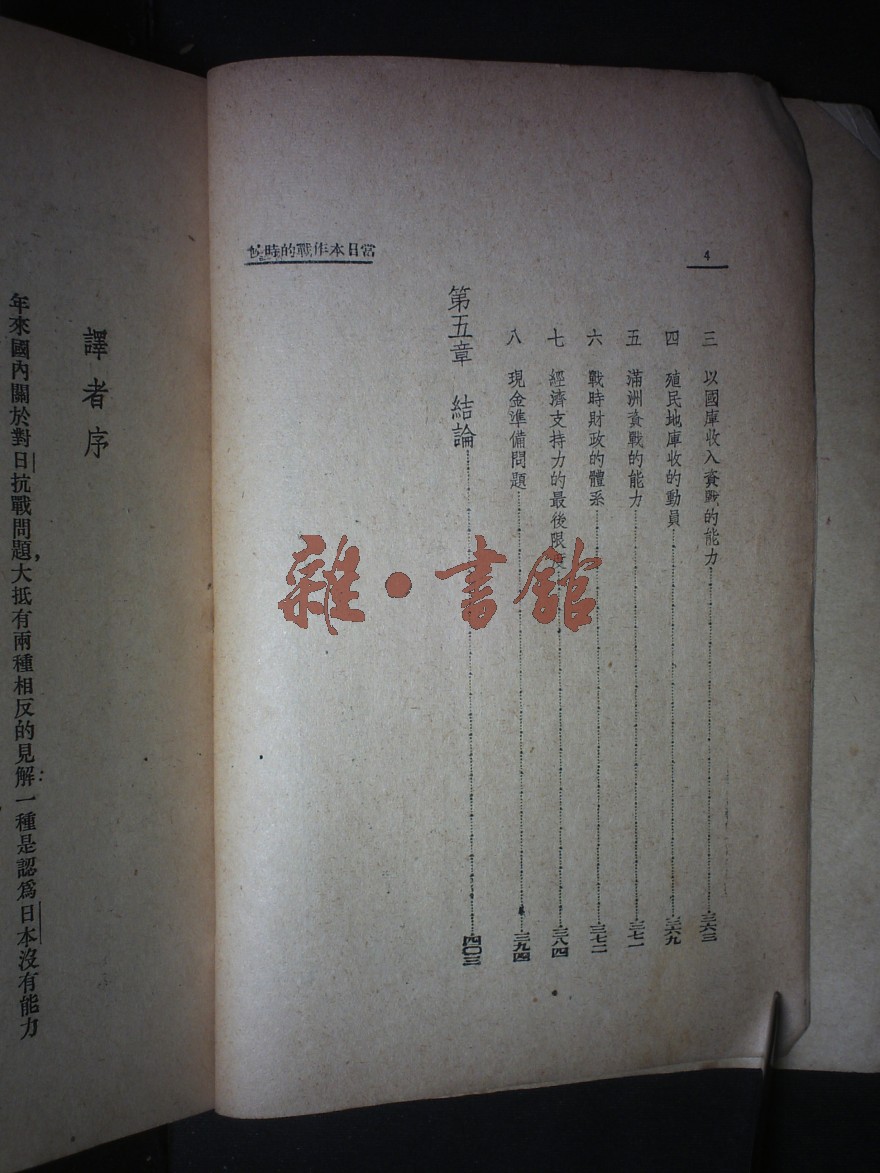 4
當日本作戰的時候
三 以國庫收入賚戰的能力……三六三
四 殖民地庫收的動員……三六九
五 滿洲賚戰的能力……三七一
六 戰時財政的體系……三七二
七 經濟支持力的最後限度……三八四
八 現金準備問題……三九四
第五章 結論……四〇三
雜・書館
譯者序
年來國內關於對日抗戰問題，大抵有兩種相反的見解：一種是認爲日本沒有能力